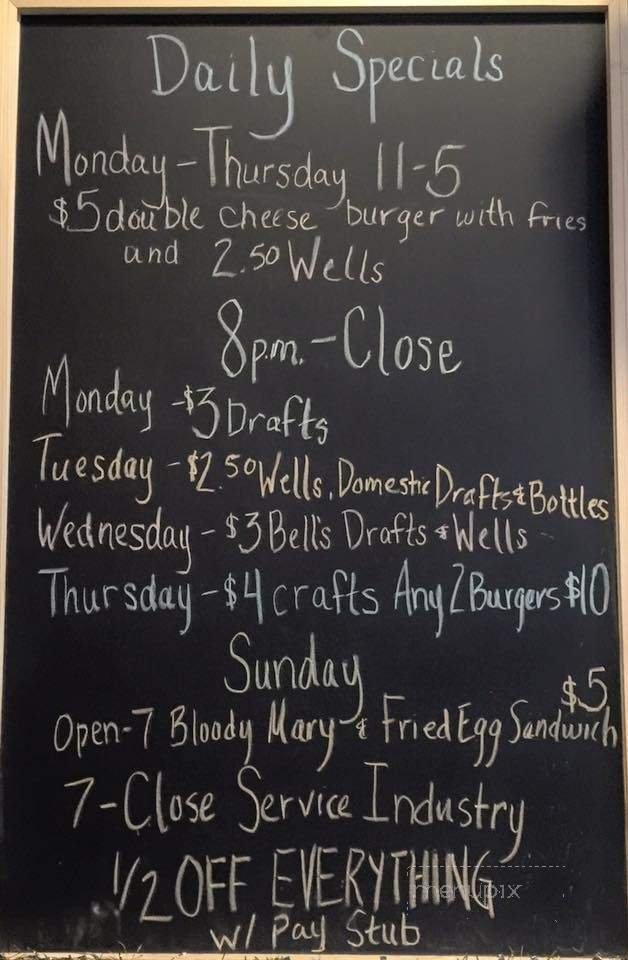 Daily Specials
Monday-Thursday 11-5
$5 double cheese burger with fries
and 2.50 Wells
8p.m.-Close
Monday -$3 Drafts
Tuesday -$2.50 Wells, Domestic Drafts & Bottles
Wednesday - $3 Bell's Drafts & Wells
Thursday -$4 crafts Any 2 Burgers $10
Sunday
$5
Open-7 Bloody Mary & Fried Egg Sandwich
7-Close Service Industry
1/2 OFF EVERYTHING
menupix
w/ Pay Stub